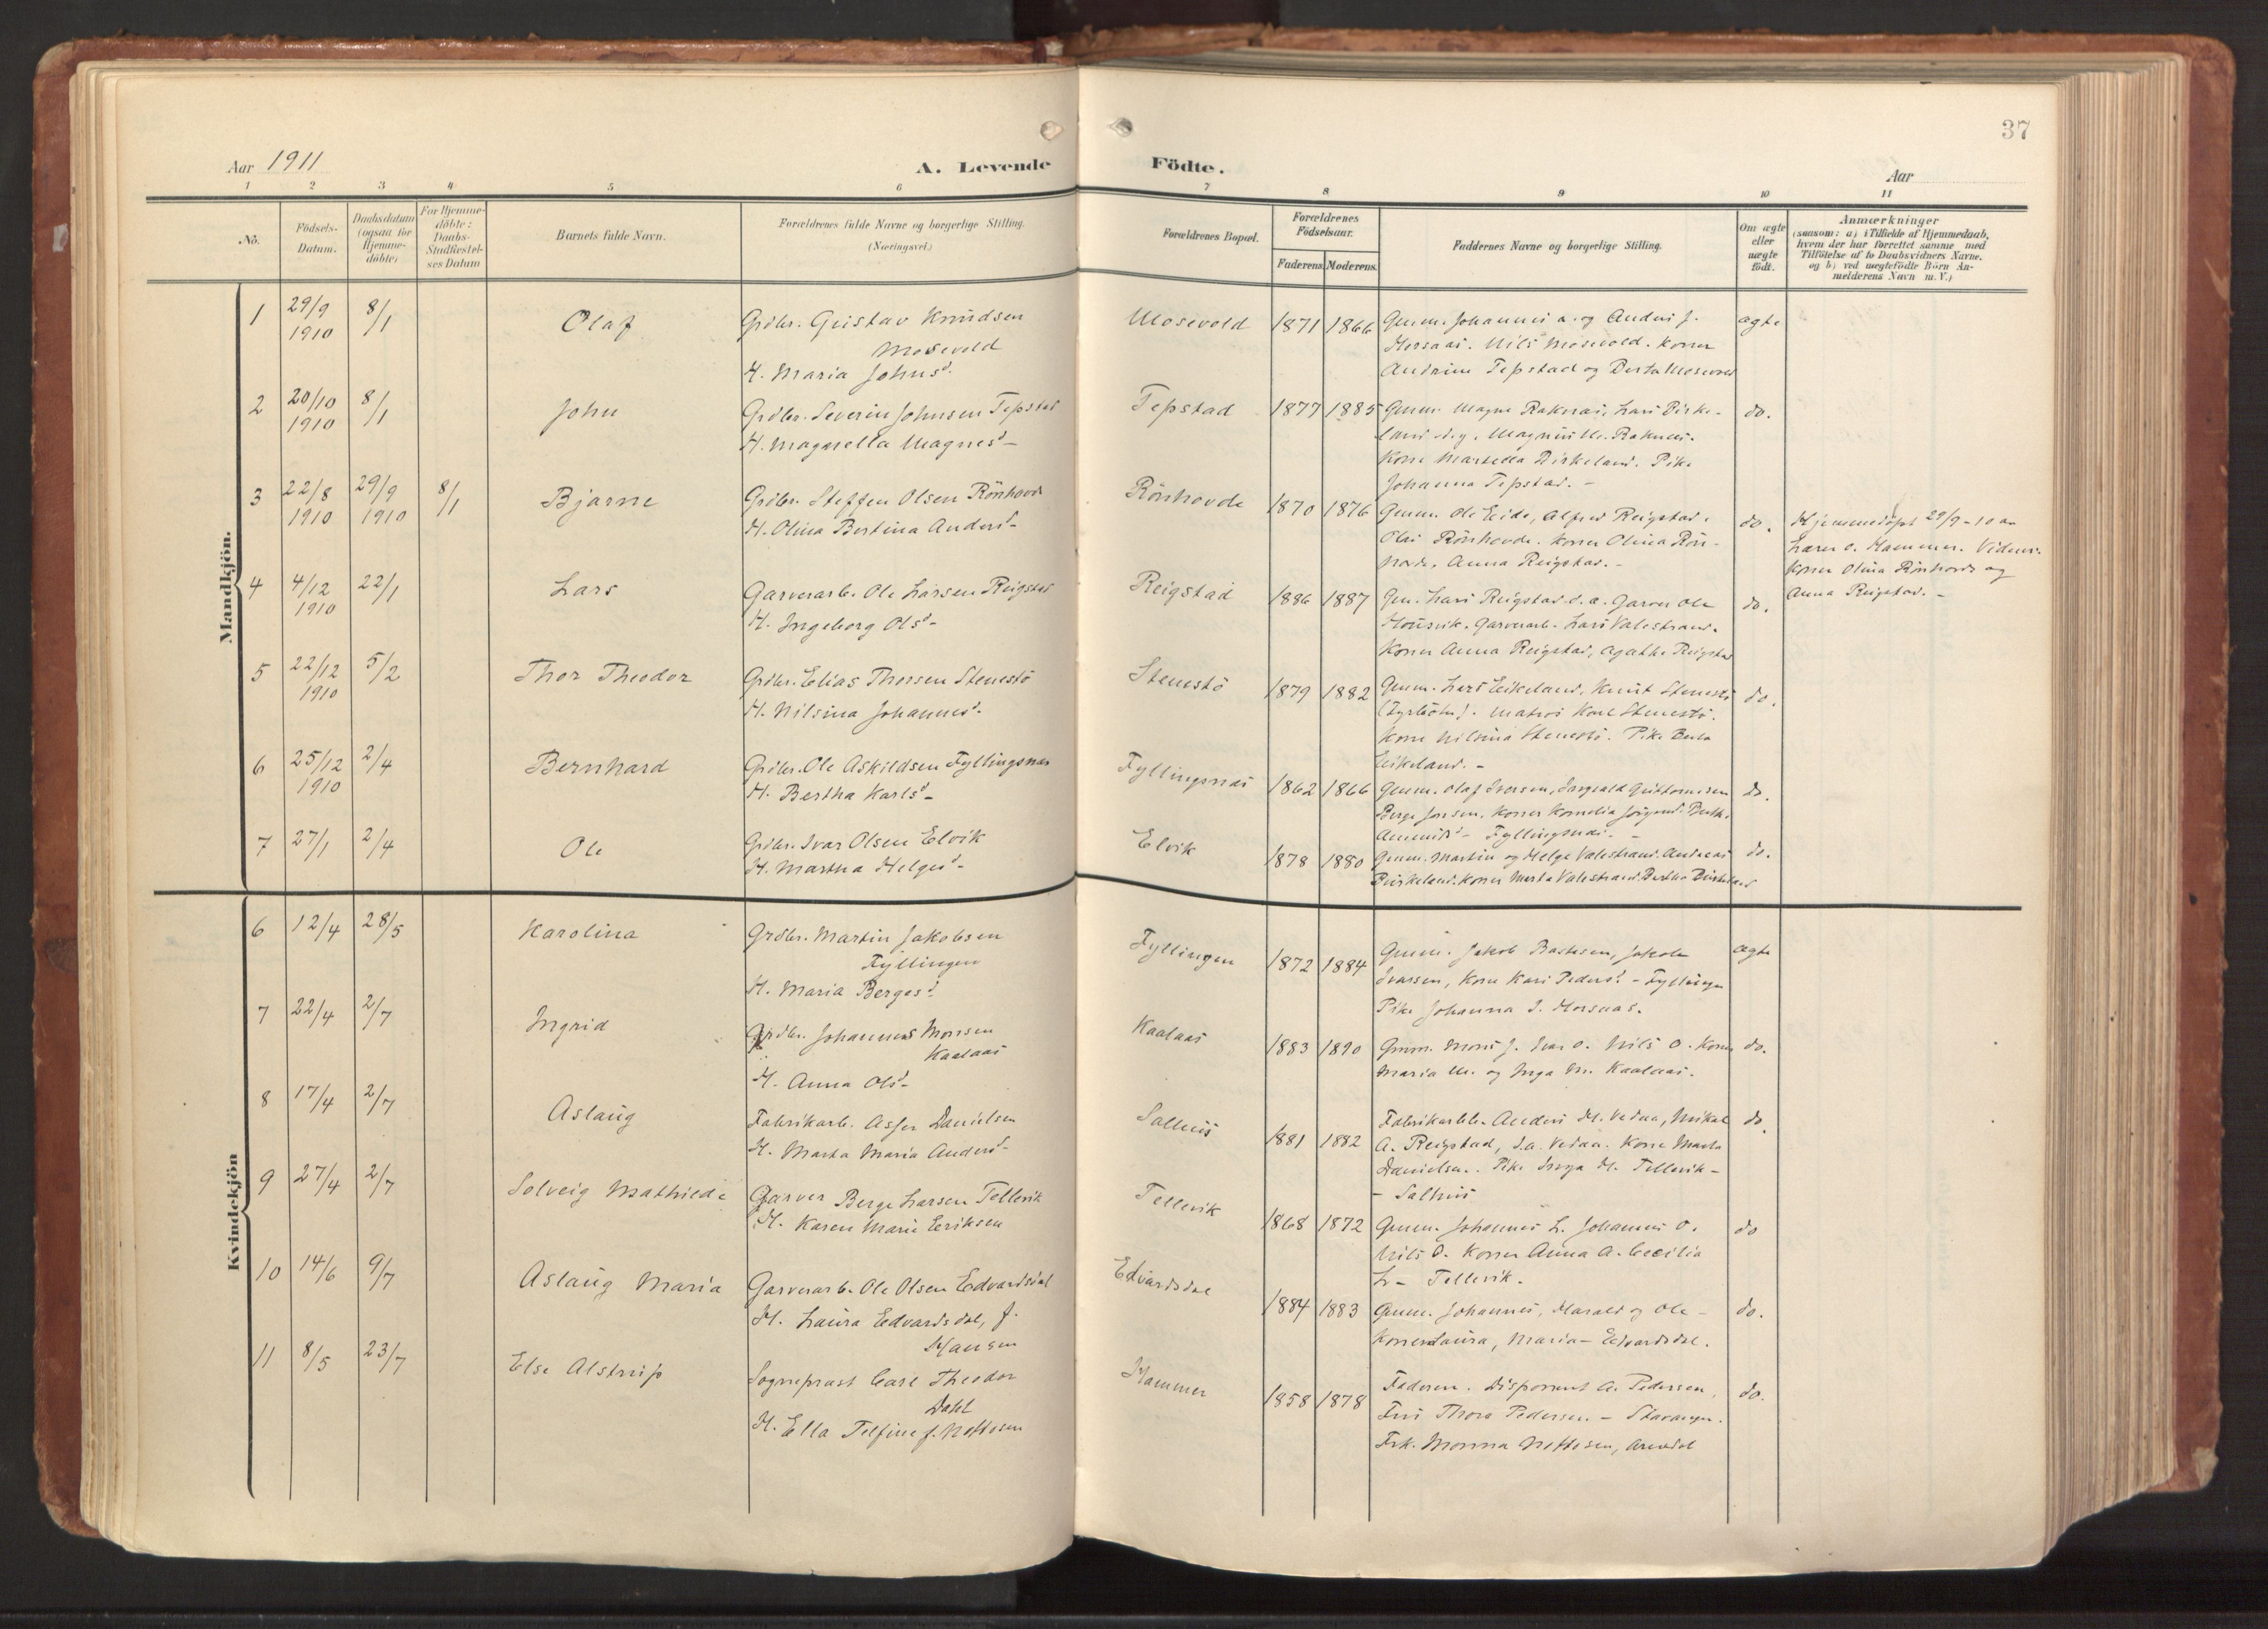 37
Aar 1911
A. Levende Födte.
Aar
1 2 3 4 5 6 7 8 9 10 11
No.
Födsels-Datum.
Daabsdatum (ogsaa for Hjemme-döbte)
For Hjemme-döbte: Daabs-Stadfæstel-ses Datum
Barnets fulde Navn.
Forældrenes fulde Navne og borgerlige Stilling.
(Næringsvei.)
Forældrenes Bopæl.
Forældrenes Födselsaar.
Faderens Moderens.
Faddernes Navne og borgerlige Stilling.
Om ægte eller uægte födt.
Anmærkninger
(saasom: a) i Tilfælde af Hjemmedaab,
hvem der har forrettet samme med
Tilföielse af to Daabsvidners Navne.
og b) ved uægtefödte Börn An-
melderens Navn m. V.)
Mandkjön.
1 29/9 1910 8/1 Olaf
Grdbr. Gustav Knudsen
Mosevold
H. Maria Johnsd.
Mosevold 1871 1866
Gmm. Johannes a. og Anders J.
Hersaas. Nils Mosevold. Koner
Andrine Tepstad og Berta Mosevold
ægte
2 20/10 1910 8/1 John
Grdbr. Severin Johnsen Tepstad
H. Magnella Magnesd-
Tepstad 1877 1885
Gmm. Magne Raknes, Lars Birke-
land d.y. Magnus M. Raknes.
Kone Martha Birkeland. Pike
Johanna Tepstad. -
do.
3 22/8 1910 29/9 1910 8/1 11 Bjarne
Grdbr. Steffen Olsen Rönhovde
H. Olina Bertina Andersd-
Rönhovde 1870 1876
Gmm. Ole Eide, Alfred Reigstad.
Olai Rönhovde. Koner Olina Rön-
hovde, Anna Reigstad. -
do.
Hjemmedöpt 29/9-10 av
Lærer O. Hammer. Vidner:
Koner Olina Rönhovde og
Anna Reigstad. -
4 4/12 1910 22/1 Lars
Garverarb. Ole Larsen Reigstad
H. Ingeborg Olsd-
Reigstad 1886 1887
Gm. Lars Reigstad d. a. Garver Ole
Housvik. Garverarb. Lars Valestrand.
Koner Anna Reigstad, Agathe Reigstad
do.
5 22/12 1910 5/2 Thor Theodor
Grdbr. Elias Thorsen Stenestö
H. Nilsina Johannesd-
Stenestö 1879 1882
Gmm. Lars Eikeland, Knut Stenestö
Matros Karl Stenestö.
Kone Nilsina Stenestö. Pike Berta
Eikeland. -
do.
6 25/12 1910 2/4 Bernhard
Grdbr. Ole Askildsen Fyllingsnæs
H. Bertha Karlsd-
Fyllingsnæs 1862 1866
Gmm. Olaf Iversen, Ingvald Guttormsen
Berge Jonsen, Koner Kornelia Jörgensd. Berthe
Fyllingsnæs. -
do.
7 27/1 2/4 Ole
Grdbr. Ivar Olsen Elvik
H. Martha Helgesd-
Elvik 1878 1880
Gmm. Martin og Helge Valestrand. Andreas
Birkeland. Koner Marta Valestrand Bertha Birkeland
do.
Kvindekjön
6 12/4 28/5 Karolina
Grdbr. Martin Jakobsen
Fyllingen
H. Maria Bergesd.
Fyllingen 1872 1884
Gmm. Jakob Bastesen, Jakob
Ivarsen, Kone Kari Pedersd. - Fyllingen
Pike Johanna I. Horsaas.
ægte
7 22/4 2/7 Ingrid
Grdbr. Johannes Monsen
Kaalaas
H. Anna Olsd-
Kaalaas 1883 1890
Gmm. Mons J. Ivar O. Nils O. Koner
Maria M. og Inga M. Kaalaas.
do.
8 17/4 2/7 Aslaug
Fabrikarb. Asser Danielsen
H. Marta Maria Andersd-
Salhus 1881 1882
Fabrikarbb. Anders H. Vedaa, Mikal
A. Reigstad, I.a. Vedaa. Kone Marta
Danielsen. Pike Inga H. Tellevik-
- Salhus
do.
9 27/4 2/7 Solveig Mathilde
Garver Berge Larsen Tellevik
H. Karen Marie Eriksen
Tellevik 1868 1872
Gmm. Johannes L. Johannes O.
Nils O. Koner Anna A. Cecilia
L- Tellevik.
do
10 14/6 9/7 Aslaug Maria
Garverarb. Ole Olsen Edvardsdal
H. Laura Edvardsdal, f.
Hansen
Edvardsdal 1884 1883
Gmm. Johannes, Harald og Ole -
Koner Laura, Maria - Edvardsdal.
do.
11 8/5 23/7 Else Alstrup
Sogneprest Carl Theodor
Dahl
H. Ella Telfine f. Nottosen
Hammer 1858 1878
Faderen. Disponent A. Pedersen,
Fru Thora Pedersen - Stavanger.
Frk. Monna Nottosen, Arendal
do.